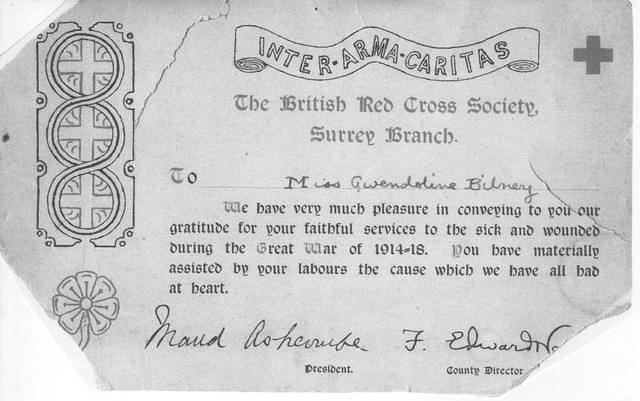 INTER·ARMA·CARITAS
The British Red Cross Society,
Surrey Branch.
To Miss Gwendoline Bilney
We have very much pleasure in conveying to you our
gratitude for your faithful services to the sick and wounded
during the Great War of 1914-18. You have materially
assisted by your labours the cause which we have all had
at heart.
Maud Ashcombe. F. Edward
President. County Director